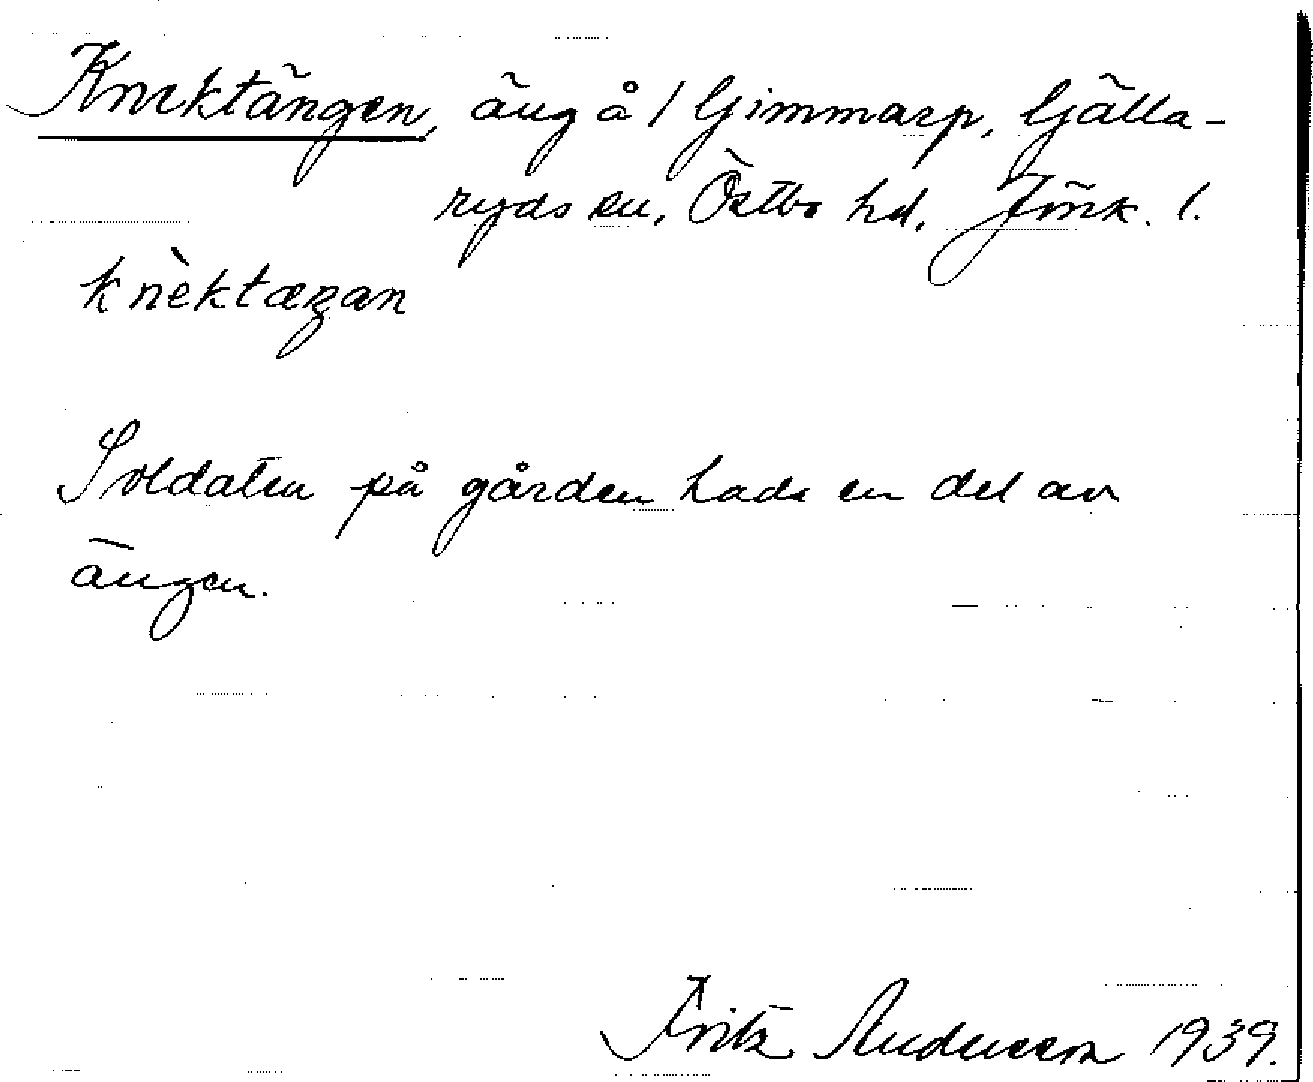 Knektängen, äng å 1 Gimmarp, Gjälla-
ryds sn, Östbo hd, Jönk. l.
knèktæŋan
Soldaten på gården hade en del av
ängen.
Fritz Andersson 1939.